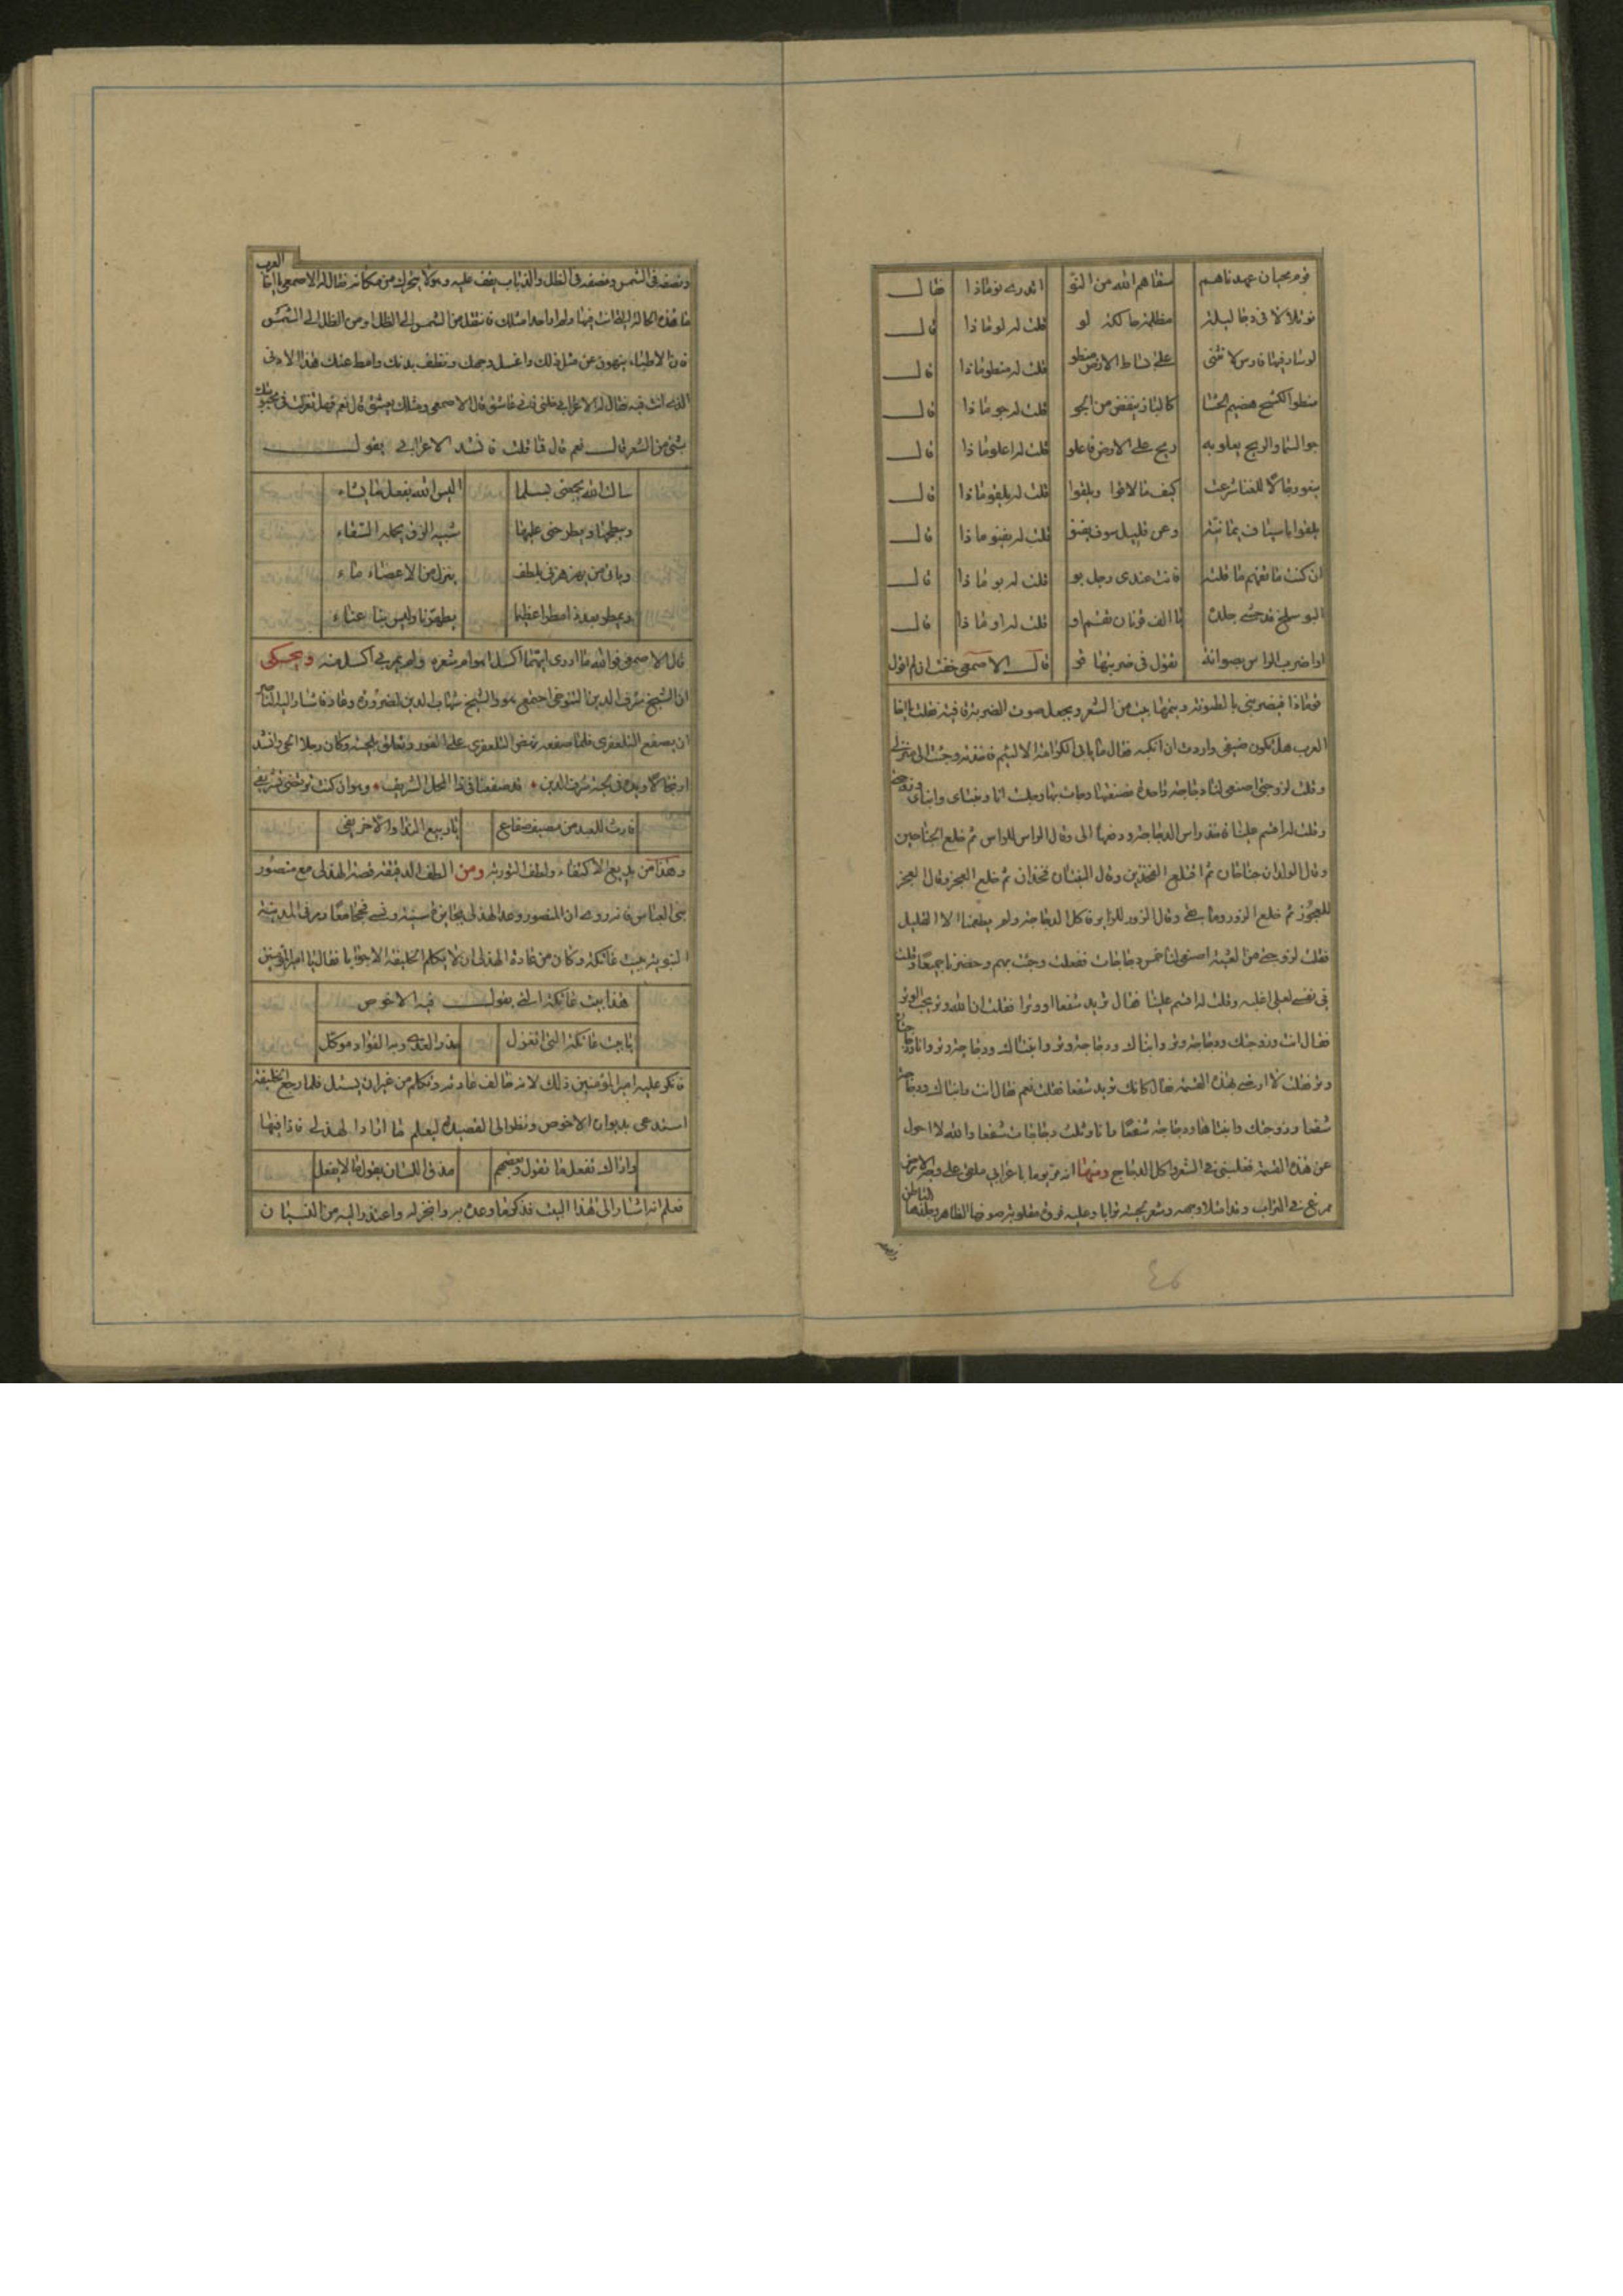 قوم بحيان عهدناهم سقاهم الله من النو اتدرى نو ماذا فقال
نو تلألأ في دجا ليلة مظلمة حالكة لو قلت له لو ماذا قال
لو سار فيها فارس لا نثنى على بساط الارض منطو قلت له منطو ماذا قال
منطوا الكشح هضيم الحشا كالباز ينقض من الجو قلت له جو ماذا قال
جو السما والريح يعلو به ريح على الارض فاعلو قلت له اعلو ماذا قال
كيف ما لاقوا ويلقوا قلت له يلقو ماذا قال
يلقوا باسياف يمانية وعن قليل سوف يفنو قلت له يفنو ماذا قال
ان كنت ما تفهم ما قلته فانت عندى رجل بو قلت له بو ماذا قال
البو سلخ قد حشى جلده يا الف قرنان تقوم او قلت له او ماذا قال
او اضرب الراس بصوانة تقول في ضربتها قو قال الاصمعى خفت ان لم اقول
قو ماذا فيضربنى
العرب هل تكون ضيفى واردت ان فقال ما يابى الكرامة الا لئيم وجئت الى منزلى
وقلت لزوجتى اصنعى لنا دجاجة واحدة فصنعتها وجاءت بها وجلست انا وابناى وزوجتى
وقلت له اقسم علينا الدجاجة الى وقال الراس للراس ثم خلع الجناحين
وقال الولدان جناحان ثم اقتلع الفخذين وقال البنتان فخذان ثم خلع العجز وقال العجز
للعجوز ثم خلع الزور وما بقى وقال الزور للزاير فاكل الدجاجة ولم يطعمنا الا القليل
فقلت لزوجتى من اصنعى لنا خمس دجاجات ففعلت وجئت بهم وحضرنا جميعا وقلت
في نفسى لعلى اغلبه وقلت له اقسم علينا فقال تريد شفعا او وترا فقلت ان الله وتر يحب الوتر
فقال انت وزوجتك ودجاجة وتر وابناك ودجاجة وتر وابنتاك ودجاجة وتر وانا ودجاجتان
وتر فقلت لا ارضى بهذه القسمة فقال كانك تريد شفعا فقلت نعم فقال انت وابناك ودجاجة
شفعا وزوجتك وابنتاها ودجاجة شفعا وانا وثلث دجاجات شفعا والله لا احول
عن هذه القسمة فغلبنى في الشعر واكل الدجاج ومنها انه مر يوما باعرابى ملقى على وجه الارض
في التراب وقد وجهه وشعر لحيته ترابا وعليه فروة مقلوبة
العرب
ونصفه في الشمس ونصفه في الظل والذباب يقف عليه وهو لا يتحرك من مكانه فقال له الاصمعى يا اخا
ما هذه الحالة التى انت فيها ولم ار احدا مثلك فانتقل من الشمس الى الظل او من الظل الى الشمس
فان الاطباء ينهون عن مثل ذلك واغسل وجهك ونظف بدنك وامط عنك هذا الاذى
الذى انت فيه فقال له الاعرابى خلنى فانى عاشق قال الاصمعى ومثلك يعشق قال نعم فهل تغزلت في محبوبتك
بشئ من الشعر قال نعم قال فما قلت فانشد الاعرابى يقول
سالت الله يجمعنى بسلما اليس الله يفعل ما يشاء
ويبطحها ويطرحنى عليها شبيه الزق يحمله السقاء
وياتى من يهزهزنى بلطف ينزل من الاعضاء ماء
يطهرنا وليس بنا عناء
قال الاصمعى فوالله ما ادرى ايهما اكسل اهو ام شعره ولم يمر بى اكسل منه ويحكى
ان الشيخ شرف الدين اجتمع هو والشيخ شهاب الدين
ان يصفع التلعفرى فلما صفعه نهض التلعفرى على الفور وتعلق بلحيته وكان رجلا الحى وانشد
ارتجالا ويده في لحية شرف الدين قد صفعنا في ذا المحل الشريف وهو ان كنت ترتضى تشريفى
فارث للعبد من مصيف صفاع يا ربيع الندا والاخر يفى
وهذا من بديع الاكتفاء ولطف التورية ومن الطف الدقيقة قصة الهذلى مع منصور
بنى العباس فانه روى ان المنصور وعد الهذلى بجايزة سنية ونسى فحجا معا ومر في المدينة
النبوية ببيت عاتكة وكان من عادة الهذلى ان لا يكلم الخليفة الا جوابا فقال يا امير المؤمنين
هذا بيت عاتكة التى يقول فيه الاخوص
يا بيت عاتكة التى اتغزل حذر العدى وبه الفواد موكل
فانكر عليه امير المؤمنين ذلك لانه خالف عادته وتكلم من غير ان يسئل فلما رجع الخليفة
استدعى بديوان الاخوص ونظر الى القصيدة ليعلم ما اراد الهذلى فاذا فيها
واراك تفعل ما تقول وبعضهم مذق اللسان يقول ما لا يفعل
فعلم انه اشار الى هذا البيت فذكر ما وعده به وانجز له واعتذر اليه من النسيان